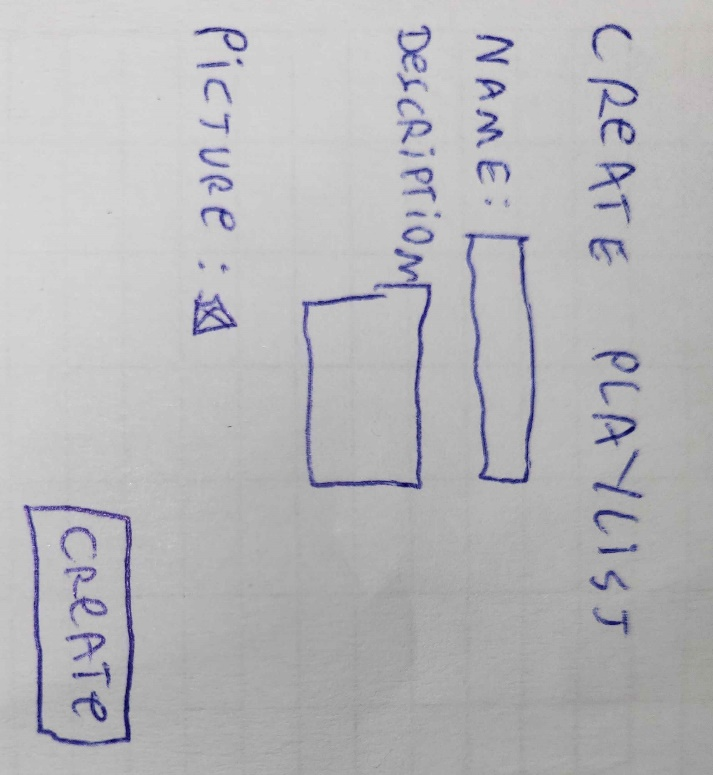 CREATE PLAYLIST
NAME:
DESCRIPTION
PICTURE:
CREATE